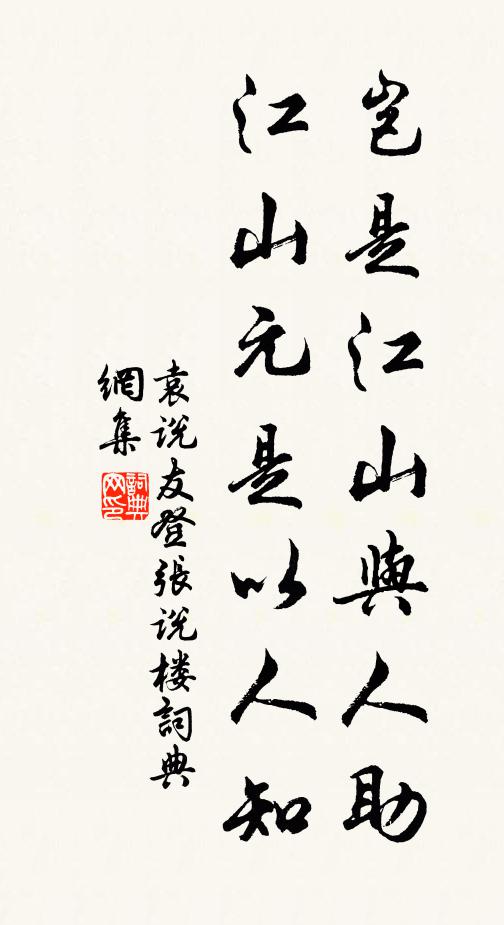 豈是江山與人助
江山元是以人知
袁说友登張说楼詞典
網集
詞典网印